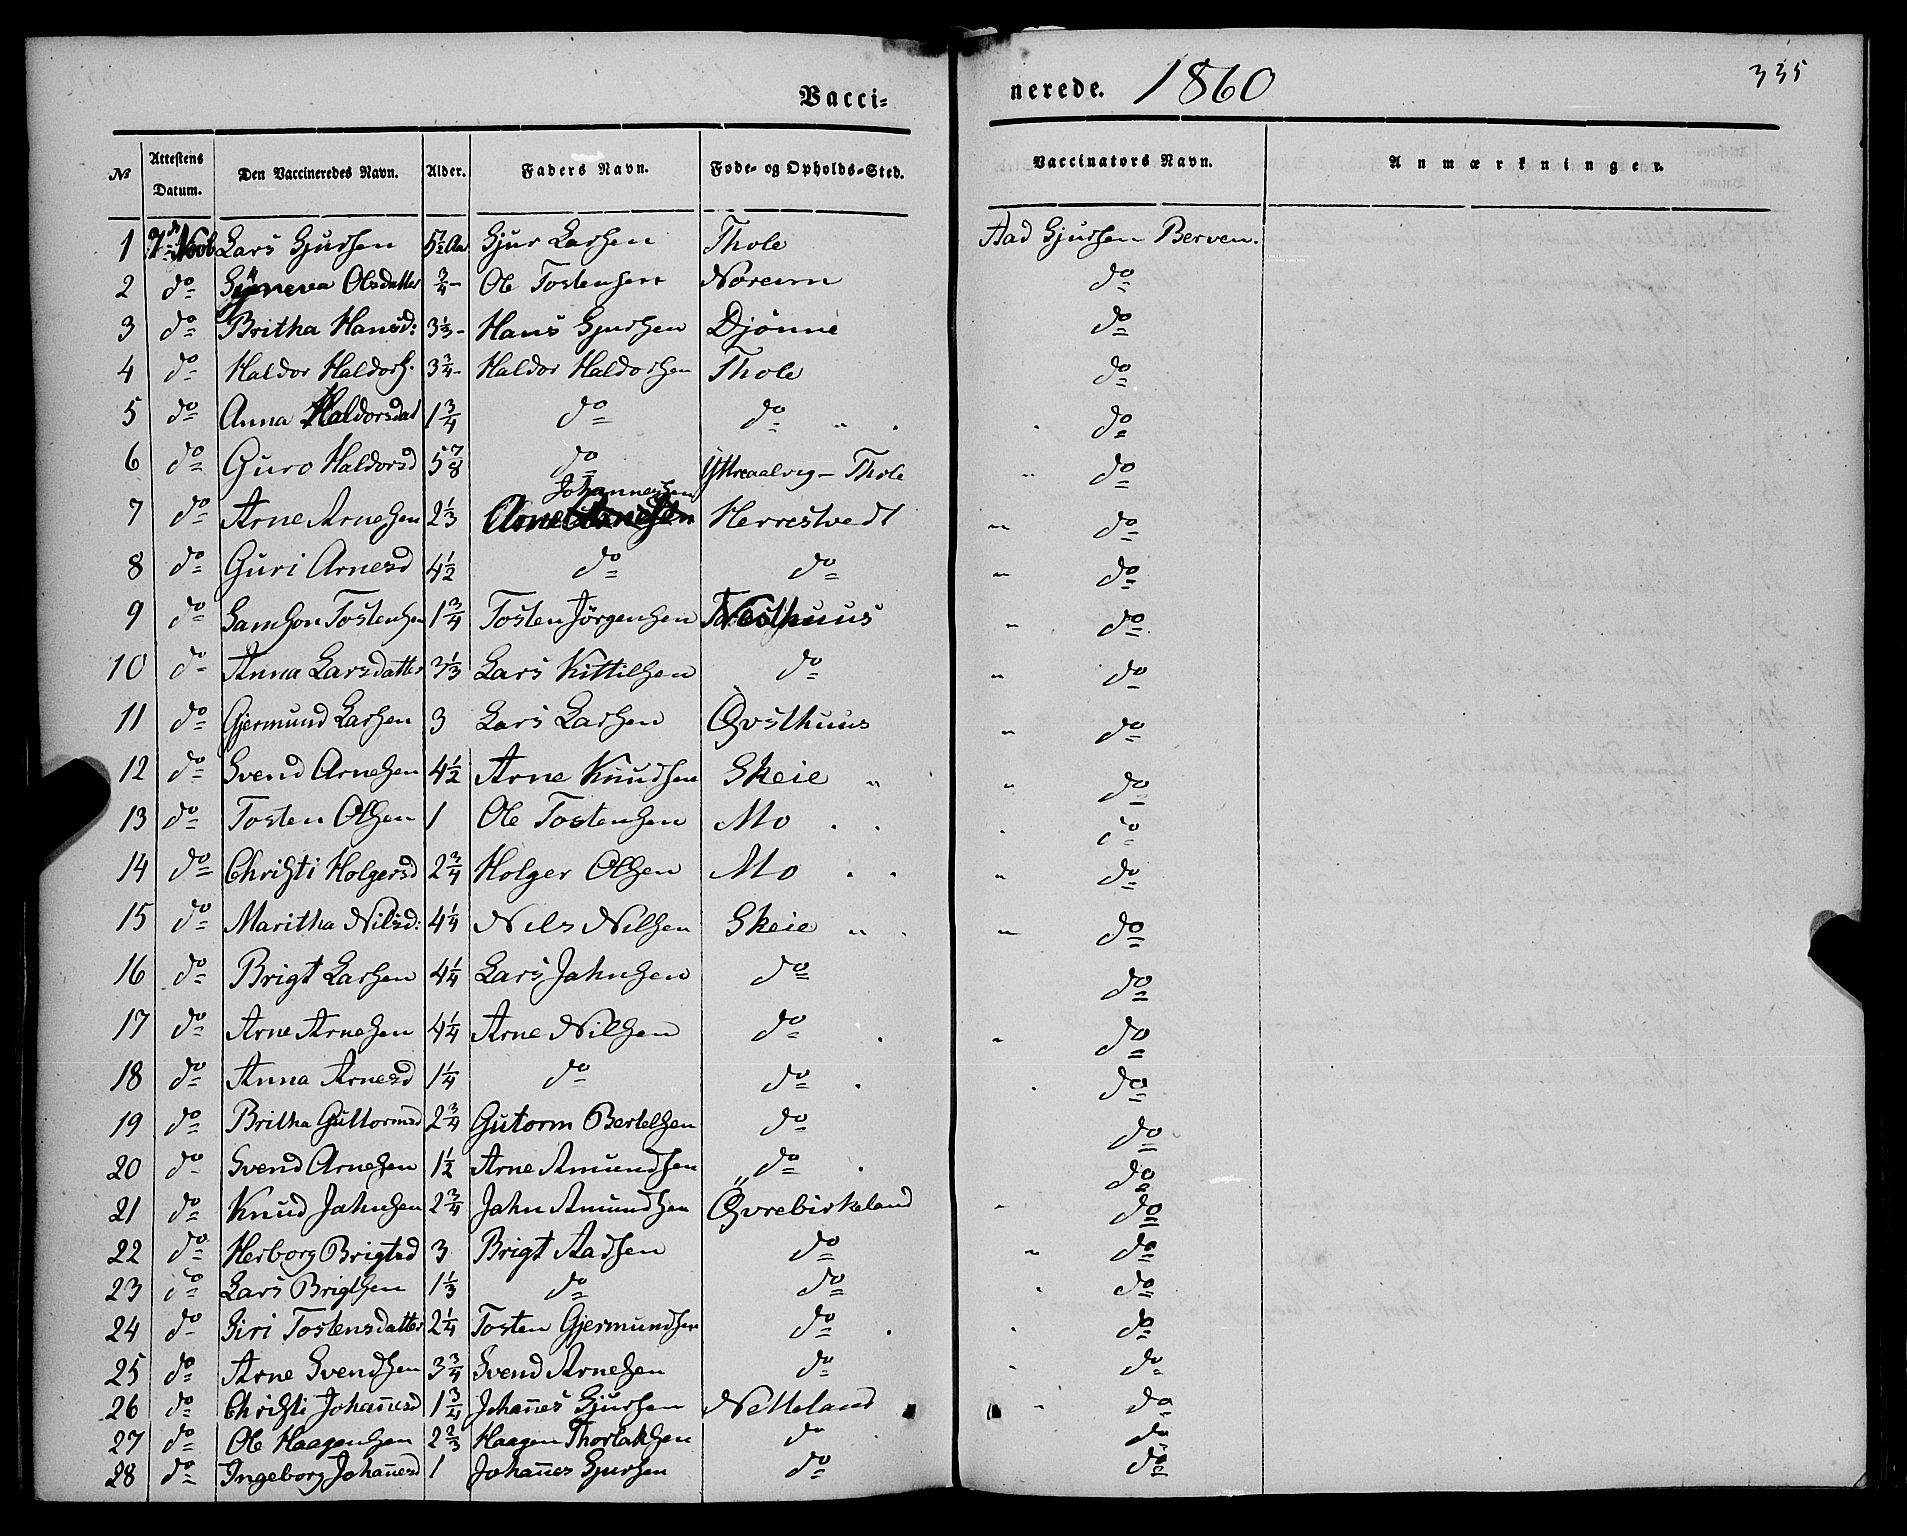 Vacci- nerede. 1860 335
№ Attestens Datum. Den Vaccineredes Navn. Alder. Faders Navn. Føde- og Opholds-Sted. Vaccinators Navn. Anmærkninger.
1 7de Novb Lars Gjursen Aar Gjur Larsen Thole Aad Gjursen Berven.
2 do Synneva Olsdatter 3/4 Ole Tostensen Noreim do
3 do Britha Hansd: 3 1/3 Hans Gjursen Djønne do
4 do Haldor Haldors. 3 3/4 Haldor Haldorsen Thole do
5 do Anna Haldorsdat 1 3/4 do do " . do
6 do Guro Haldorsd 5 7/8 do Yttreaalvig - Thole " do
7 do Arne Arnesen 2 1/3 Arne Johannesen Herrestvedt " do
8 do Guri Arnesd 4 1/2 do do " do
9 do Samson Tostensen 1 3/4 Tosten Jørgensen Nesthuus " do
10 do Anna Larsdatter 3 1/3 Lars Kittilsen do " do
11 do Gjermund Larsen 3 Lars Larsen Øvsthuus " do
12 do Svend Arnesen 4 1/2 Arne Knudsen Skeie " " do
13 do Tosten Olsen 1 Ole Tostensen Mo . . do
14 do Christi Holgersd 2 3/4 Holger Olsen Mo . . " do
15 do Maritha Nilsd: 4 1/4 Nils Nilsen Skeie " . " do
16 do Brigt Larsen 4 1/4 Lars Jahnsen do do
17 do Arne Arnesen 4 1/4 Arne Nilsen do . " do
18 do Anna Arnesd 1 1/4 do do . . do
19 do Britha Guttormsd 2 3/4 Gutorm Bertelsen do do
20 do Svend Arnesen 1 1/2 Arne Amundsen do . do
21 do Knud Jahnsen 2 3/4 Jahn Amundsen Øvrebirkeland " do
22 do Herborg Brigtsd 3 Brigt Aadsen do " do
23 do Lars Brigtsen 1 1/3 do do " do
24 do Siri Tostensdatter 2 1/4 Tosten Gjermundsen do . . do
25 do Arne Svendsen 3 3/4 Svend Arnesen do " do
26 do Christi Johan̄esd 1 3/4 Johan̄es Gjursen Netteland " do
27 do Ole Haagensen 2 2/3 Haagen Thorlaksen do . do
28 do Ingeborg Johan̄esd 1 Johan̄es Gjursen do do